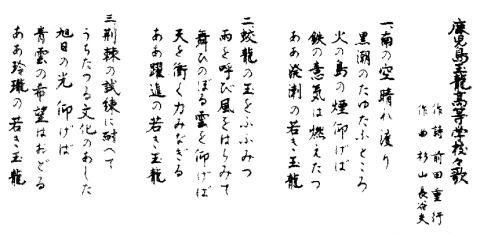 鹿児島玉龍高等学校々歌
作詩 前田重行
作曲 杉山長谷夫
一、南の空晴れ渡り
黒潮のたゆたふところ
火の島の煙仰げば
鉄の意気は燃えたつ
ああ溌溂の若き玉龍
二、蛟龍の玉をふふみつ
雨を呼び風をはらみて
舞ひのぼる雲を仰げば
天を衝く力みなぎる
ああ躍進の若き玉龍
三、荊棘の試練に耐へて
うちたつる文化のあした
旭日の光仰げば
青雲の希望はおどる
ああ玲瓏の若き玉龍